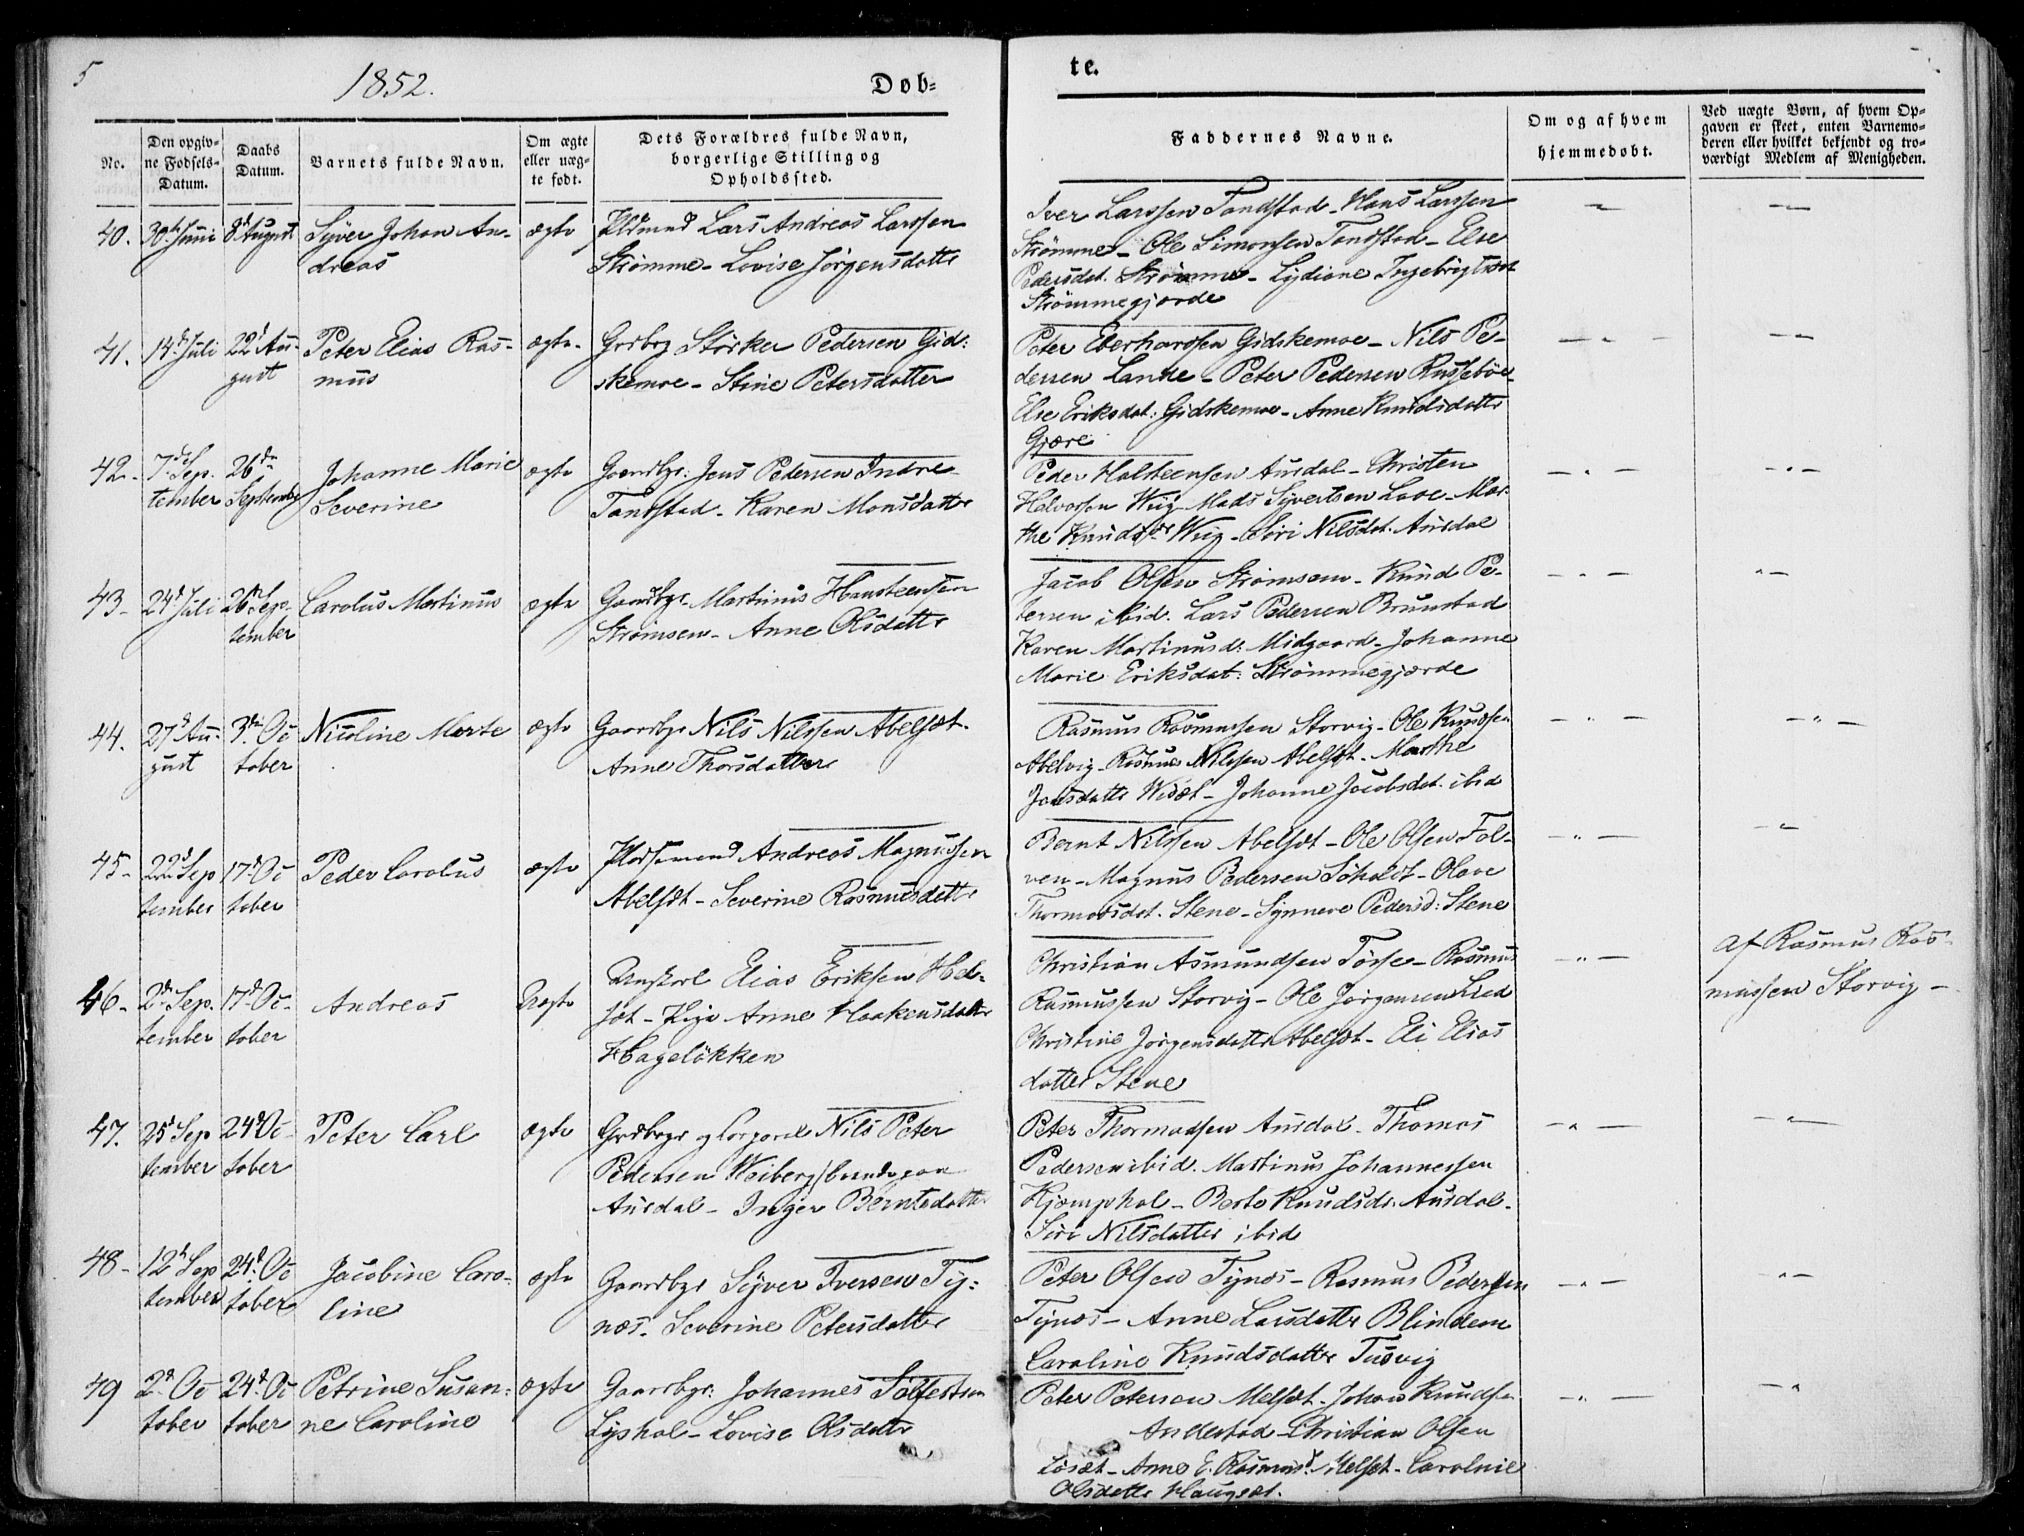 5
1852.
Døb=
te.
No.
Den opgiv=
ne Fødsels=
Datum.
Daabs
Datum.
Barnets fulde Navn.
Om ægte
eller uæg=
te født.
Dets Forældres fulde Navn,
borgerlige Stilling og
Opholdssted.
Faddernes Navne.
Om og af hvem
hjemmedøbt.
Ved uægte Børn, af hvem Op=
gaven er skeet, enten Barnemo=
deren eller hvilket bekjendt og tro=
værdigt Medlem af Menigheden.
40. 30te Juni 8d August Syver Johan An-
dreas
ægte
Lars Andreas Larssen
Strømme - Lovise Jörgensdattr
Iver Larssen Tandstad - Hans Larssen
Strömme - Ole Simonsen Tandstad - Else
Pedersdat. Strömme - Lydiane Ingebrigtsdt
Strömmegjærde
41. 14d Juli 22d Au-
gust
Peter Elias Ras-
mus
ægte
Grdbrg Störker Pedersen Gid:
skemoe - Stine Petersdatter
Peter Eberhardsen Gidskemoe - Nils Pe-
dersen Lanke - Peter Pedersen Russebøe
Else Eriksdat: Gidskemoe - Anne Knudsdattr
Gjære
42- 7de Sep-
tember
26de
September
Johanne Marie
Severine
ægte
Gaardbgr: Jens Pedersen Indre
Tandstad - Karen Monsdatter
Peder Holsteensen Aursdal - Christen
Halvorsen Wiig - Mads Syvertsen Love - Mar-
the Knudsdr Wiig - Siri Nilsdat. Aursdal
43- 24d Juli 26d Sep-
tember
Carolus Martinus
ægte
Gaardbgr Martinus Hansteensen
Strømsem - Anne Olsdattr
Jacob Olsen Strømsem - Knud Pe-
tersen ibid. Lars Pedersen Brunstad
Karen Martinusd: Midgaard - Johanne
Marie Eriksdat: Strömmegjærde
44. 27d Au-
gust
3die Oc
tober
Nicoline Merte
ægte
Gaardbgr Nils Nilssen Abelsæt.
Anne Thorsdatter
Rasmus Rasmussen Storvig - Ole Knudsen
Abelvig - Rasmus Nilssen Abelsæt - Marthe
Jonsdatter Widsæt - Johanne Jacobsdat. ibid
45- 22d Sep
tember
17d Oc
tober
Peder Carolus
ægte
Pladsemand Andreas Magnussen
Abelsæt - Severine Rasmusdattr
Bernt Nilssen Abelsæt - Ole Olsen Fol-
ven - Magnus Pedersen Søholdt - Olave
Thormodsdat. Stene - Synneve Pedersd: Stene
46- 2d Sep-
tember
17d Oc-
tober
Andreas
Uægte
Ungkarl Elias Eriksen Hel-
sæt - Pige Anne Haakensdatter
Hageløkken
Christian Asmundsen Tørse - Rasmus
Rasmussen Storvig - Ole Jørgensen Lied
Christine Jørgensdatter Abelsæt - Eli Elias
datter Stene
Af Rasmus Ras-
mussen Storvig -
47. 25d Sep
tember
24d Oc
tober
Peter Carl
ægte
Grdbrgr og Corporal Nils Peter
Pedersen Weiberg/boende paa
Aursdal - Inger Berntsdatter
Peter Thormodsen Aursdal - Thomas
Pedersen ibid. Martinus Johannessen
Kjæmphol - Berte Knudsdr. Aursdal -
Siri Nilsdatter ibid
48- 12d Sep
tember
24d Oc
tober
Jacobine Caro-
line
ægte
Gaardbgr Syver Iversen Ty:
næs. Severine Petersdatter
Peter Olsen Tynæs - Rasmus Pedersen
Tynæs - Anne Larsdatter Blindem
Caroline Knudsdatter Tusvig
49 2d Oc
tober
24d Oc
tober
Petrine Susan:
ne Caroline
ægte
Gaardbgr: Johannes Sølfestsen
Lyshol - Lovise Olsdattr
Peter Petersen Melsæt. Johan Knudsen
Andestad - Christian Olsen
Løsæt - Anne E. Rasmusd. Melsæt - Caroline
Olsdatter Haugset.